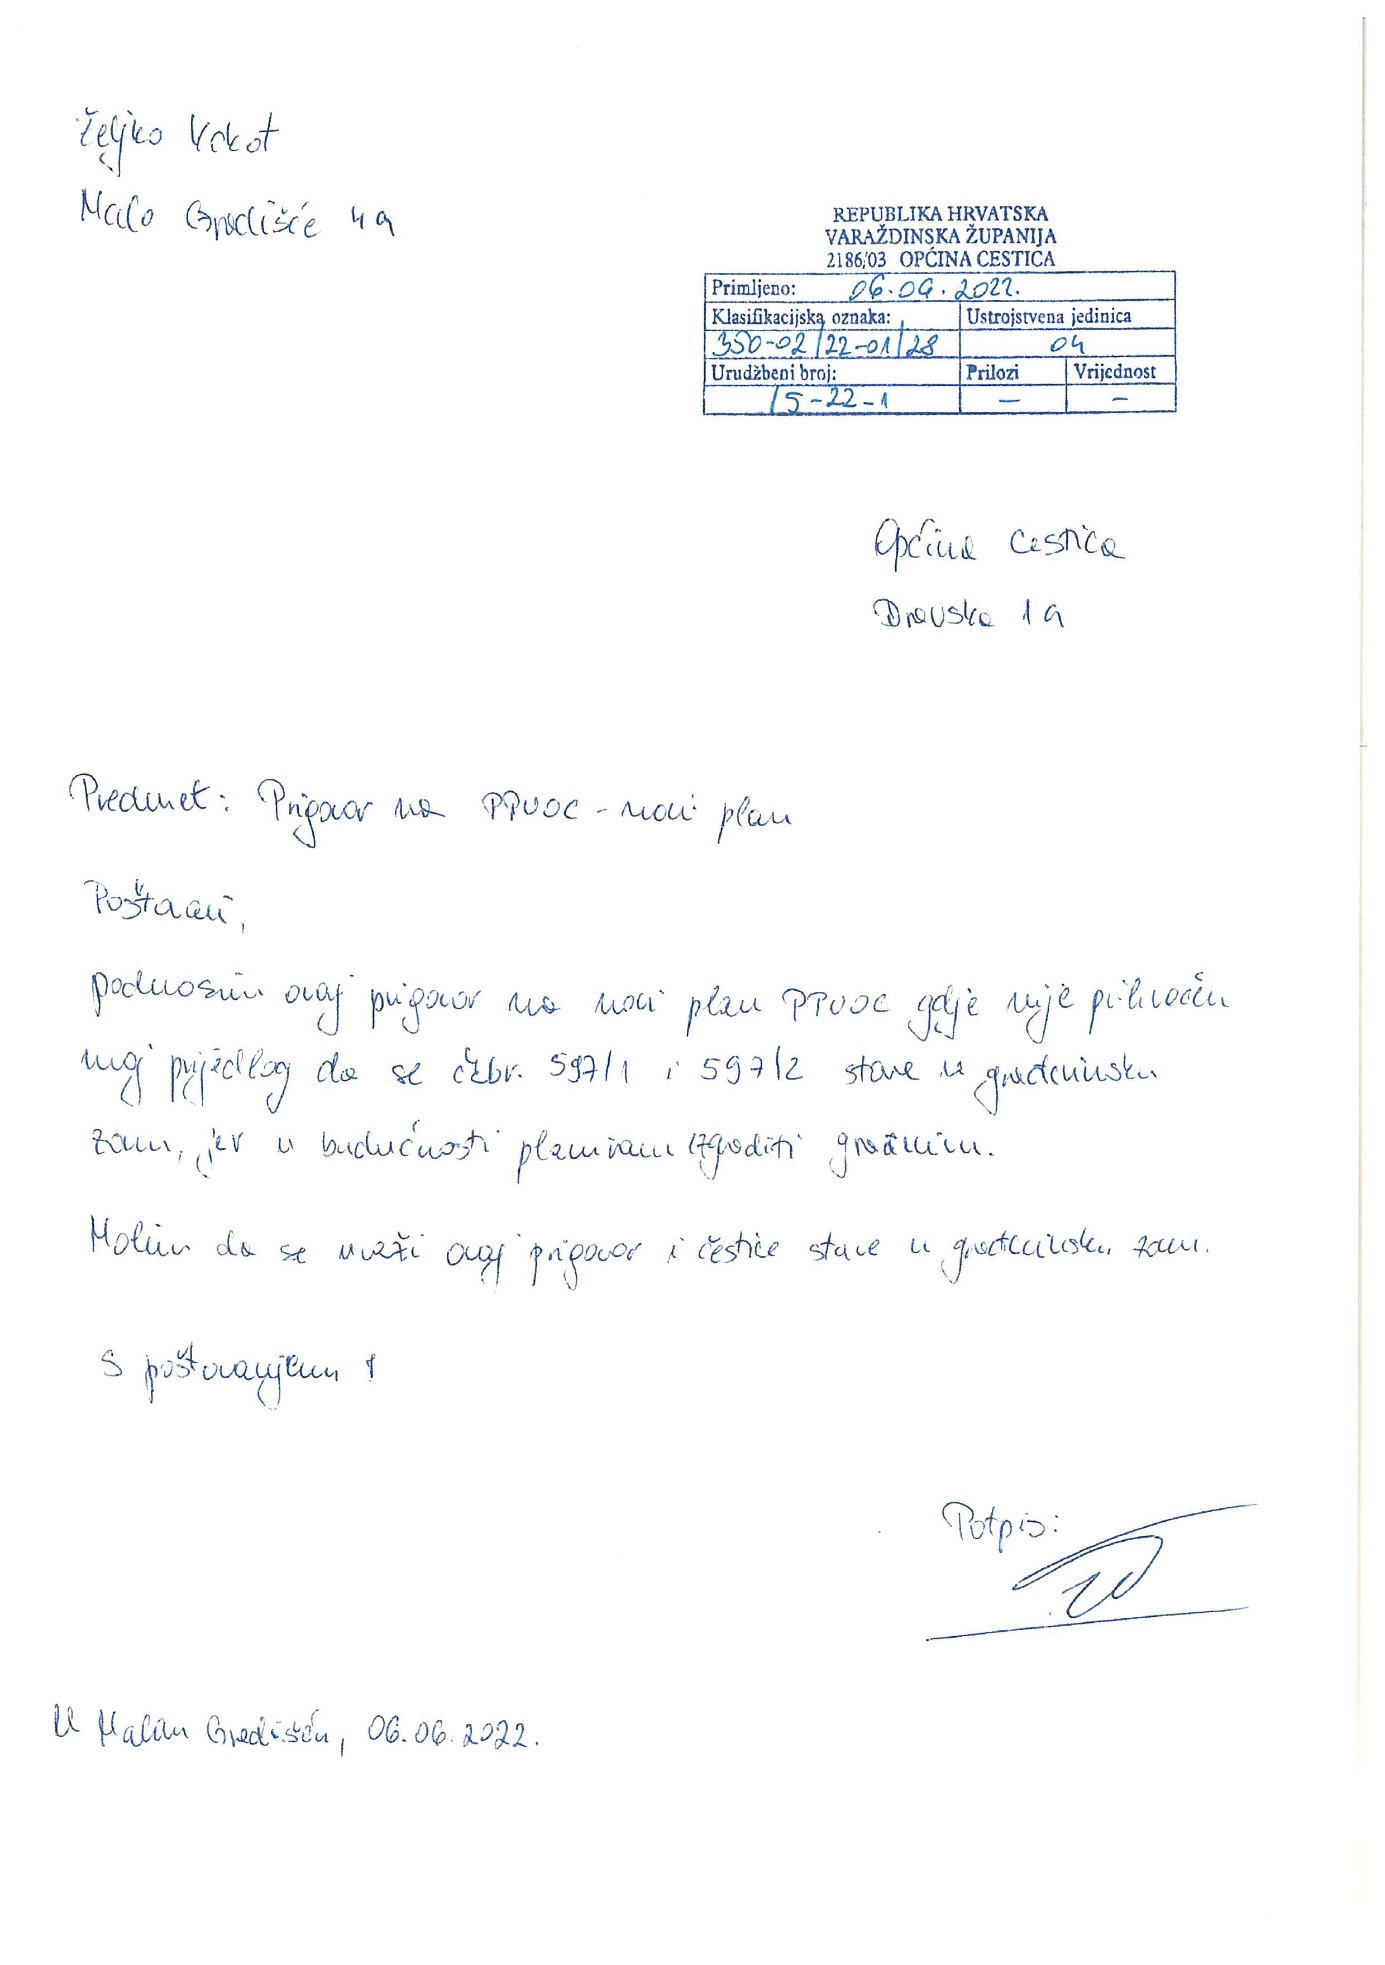 Željko Vrkot
Malo Gradišće 4a
REPUBLIKA HRVATSKA
VARAŽDINSKA ŽUPANIJA
2186/03 OPĆINA CESTICA
Primljeno: 06.06.2022.
Klasifikacijska oznaka: Ustrojstvena jedinica
350-02/22-01/28 04
Urudžbeni broj: Prilozi Vrijednost
15-22-1 — —
Općina Cestica
Dravska 1a
Predmet: Prigovor na PPUOC - novi plan
Poštovani,
podnosim ovaj prigovor na novi plan PPUOC gdje nije prihvaćen
moj prijedlog da se čkbr. 597/1 i 597/2 stave u građevinsku
zonu, jer u budućnosti planiram izgraditi
Molim da se uvaži ovaj prigovor i čestice stave u građevinsku zonu.
S poštovanjem!
Potpis:
U Malom Gradišću, 06.06.2022.